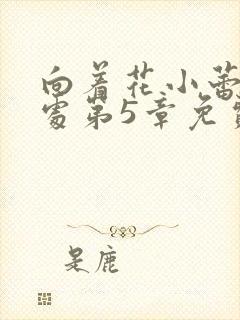 向着花小蕾
处第5章免费
是鹿